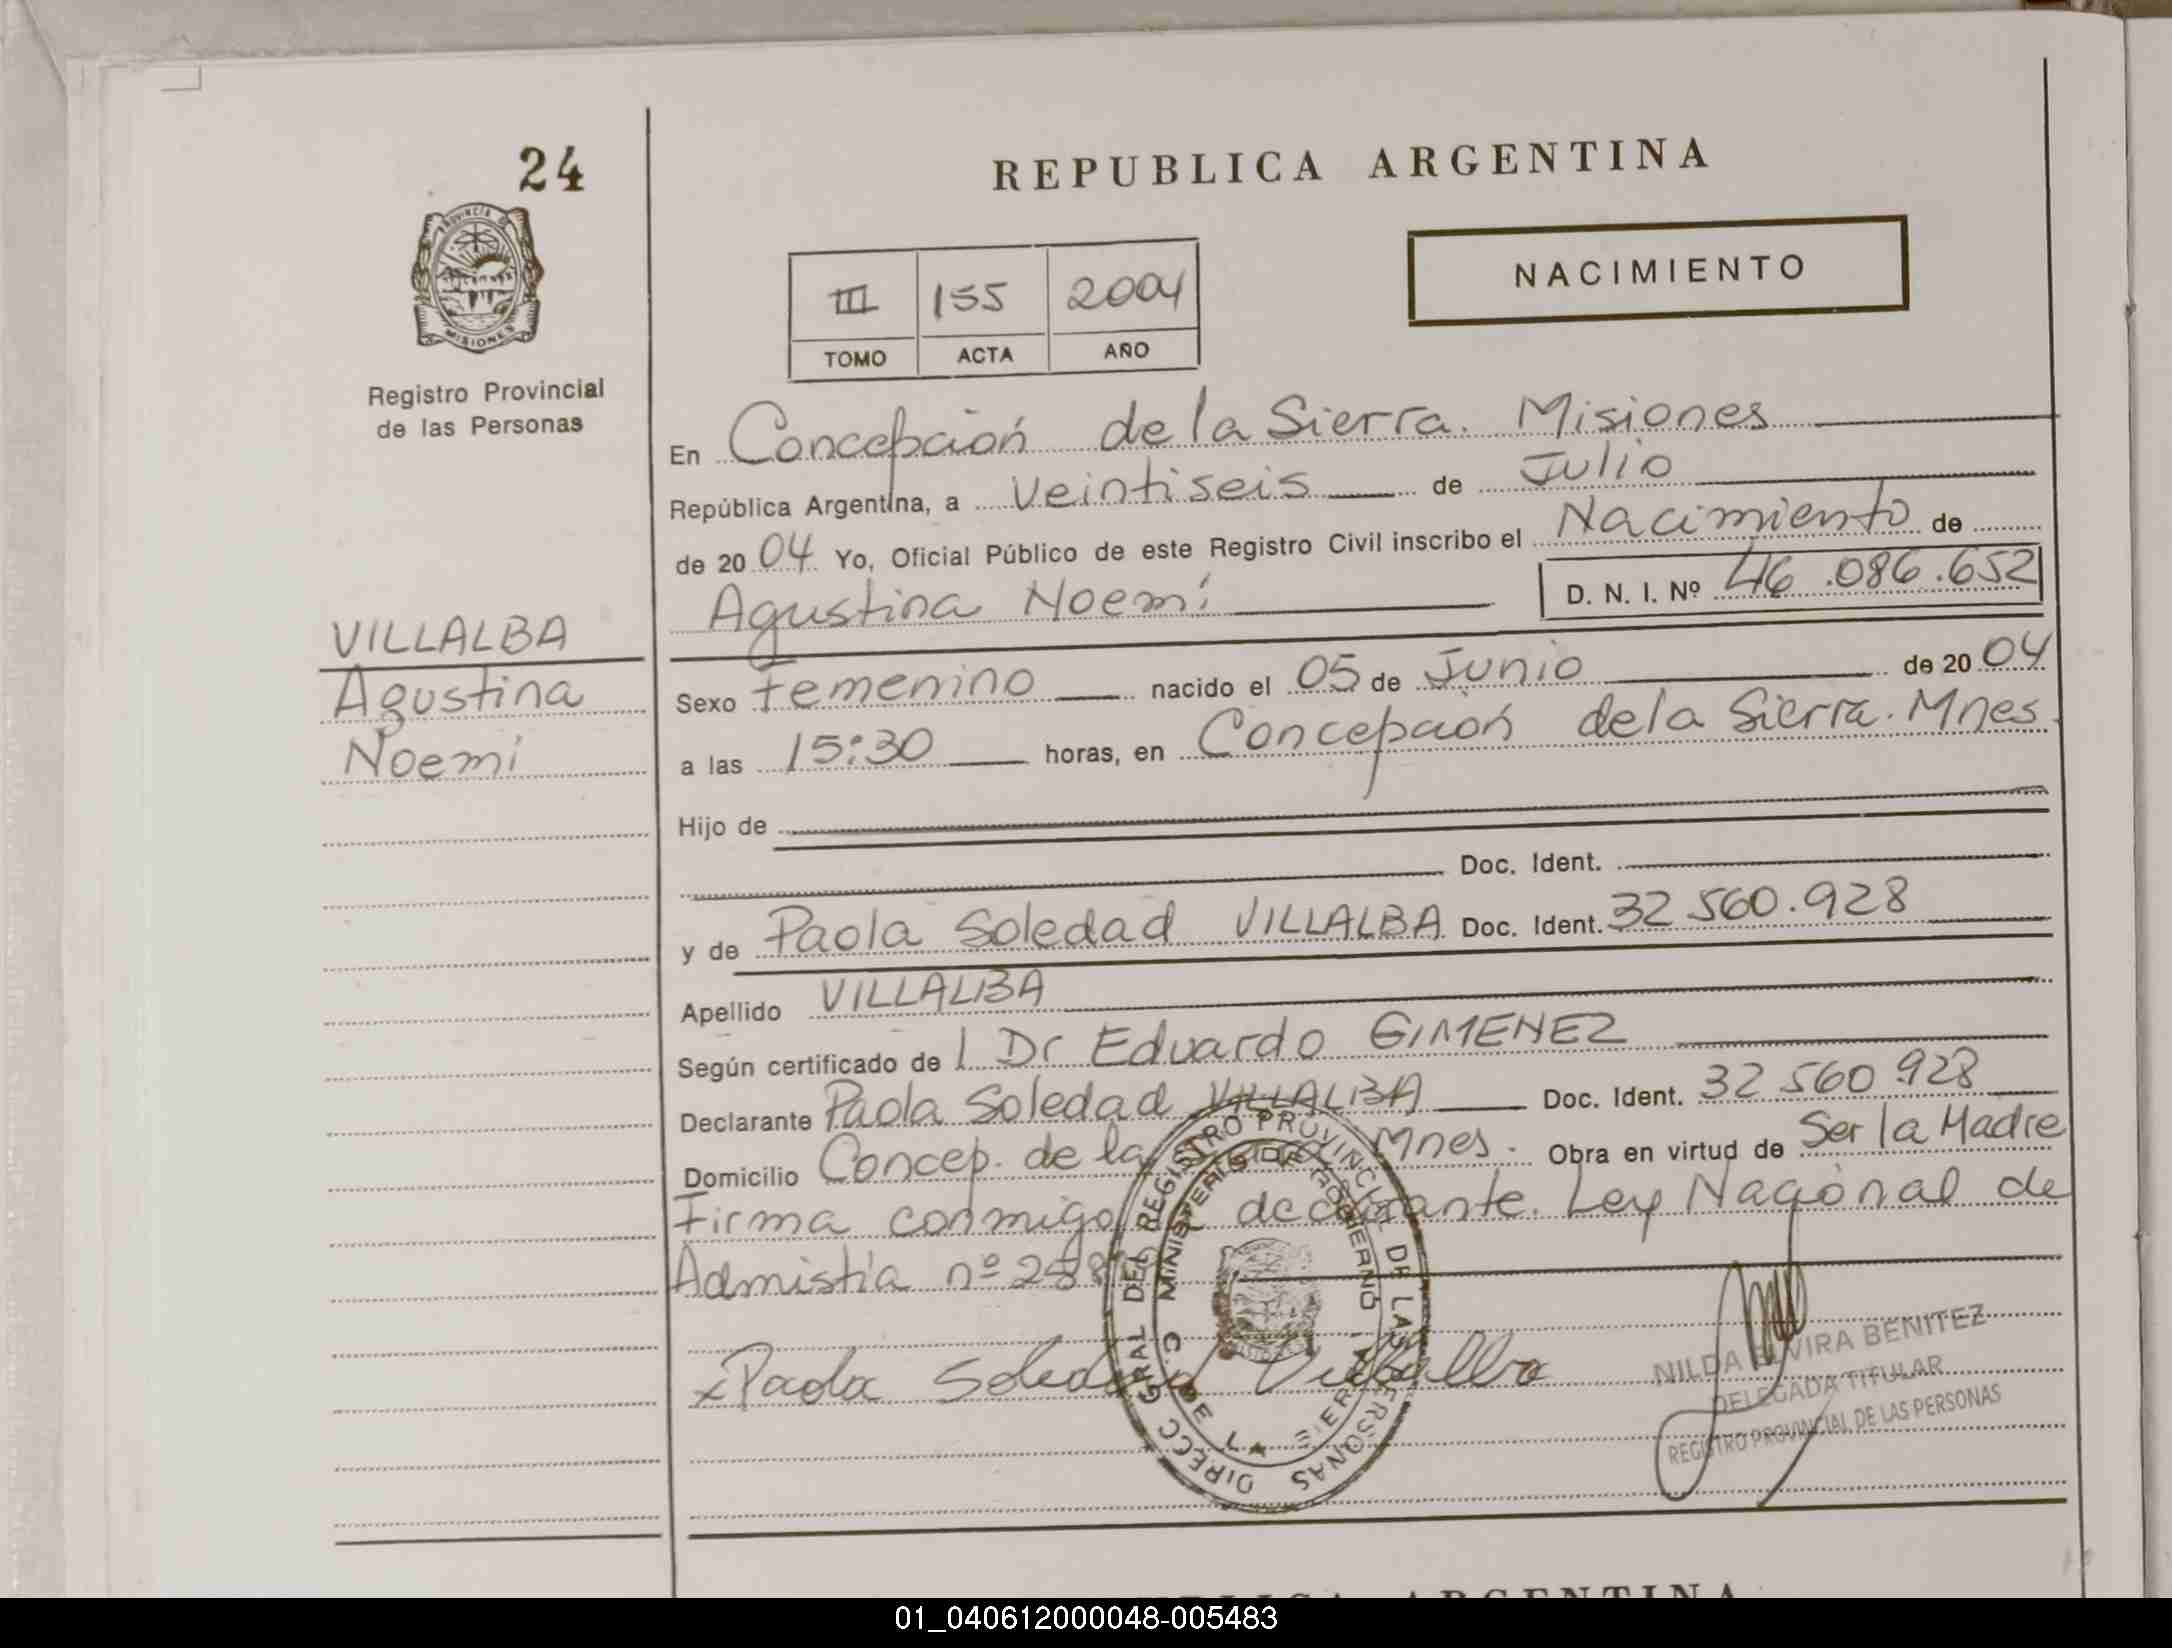 24
REPUBLICA ARGENTINA
PROVINCIA DE
MISIONES
Registro Provincial
de las Personas
NACIMIENTO
III 155 2004
TOMO ACTA AÑO
En Concepción de la Sierra. Misiones
República Argentina, a Veintiseis de Julio
de 2004 Yo, Oficial Público de este Registro Civil inscribo el Nacimiento de
Agustina Noemí D. N. I. Nº 46.086.652
VILLALBA
Agustina
Noemi
Sexo femenino nacido el 05 de Junio de 2004
a las 15:30 horas, en Concepción de la Sierra. Mnes.
Hijo de
Doc. Ident.
y de Paola Soledad VILLALBA Doc. Ident. 32 560.928
Apellido VILLALBA
Según certificado de l Dr Eduardo GIMENEZ
Declarante Paola Soledad VILLALBA Doc. Ident. 32 560.928
Domicilio Concep. de la Mnes. Obra en virtud de Ser la Madre
Firma conmigo declarante. Ley Nacional de
Admistia nº
DIRECC GRAL DEL REGISTRO PROVINCIAL DE LAS PERSONAS
MINISTERIO DE GOBIERNO
x Paola Soledad Villalba
NILDA ELVIRA BENITEZ
DELEGADA TITULAR
REGISTRO PROVINCIAL DE LAS PERSONAS
ARGENTINA
01_040612000048-005483